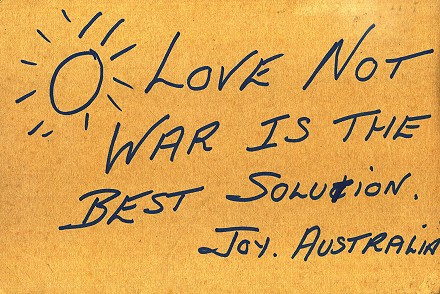 LOVE NOT
WAR IS THE
BEST SOLUTION.
JOY. AUSTRALIA